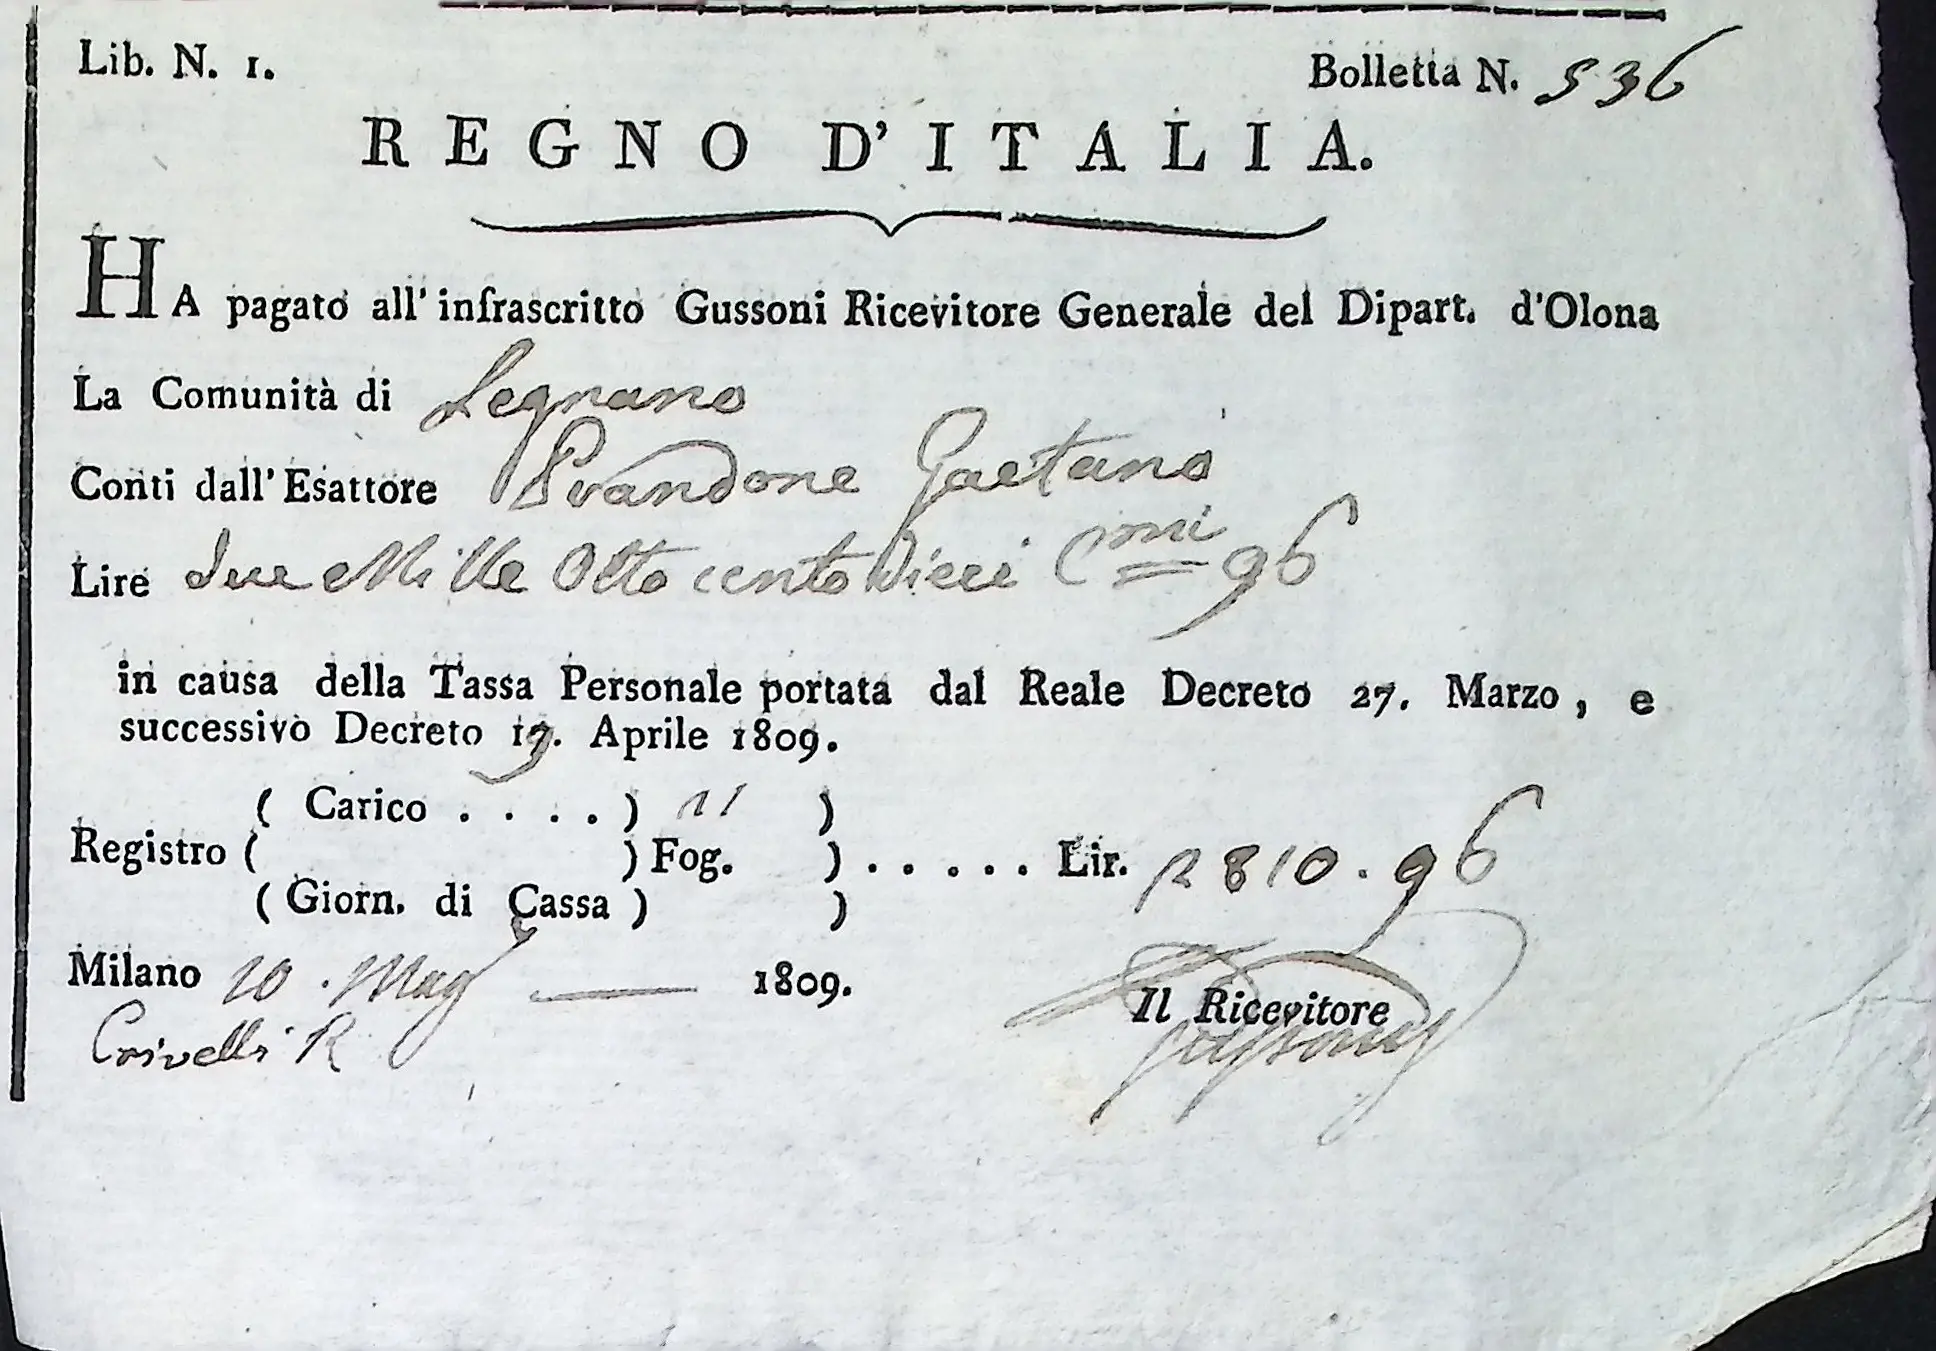 Lib. N. 1.
Bolletta N. 536
REGNO D'ITALIA.
HA pagato all'infrascritto Gussoni Ricevitore Generale del Dipart. d'Olona
La Comunità di Legnano
Conti dall'Esattore Prandone Gaetano
Lire due Mille Otto cento Dieci Cmi 96
in causa della Tassa Personale portata dal Reale Decreto 27. Marzo, e
successivo Decreto 19. Aprile 1809.
( Carico . . . . ) 21 )
Registro ( ) Fog. ) . . . . . Lir. 2810.96
( Giorn. di Cassa ) )
Milano 20. Mag 1809.
Il Ricevitore
Crivelli R Gussoni